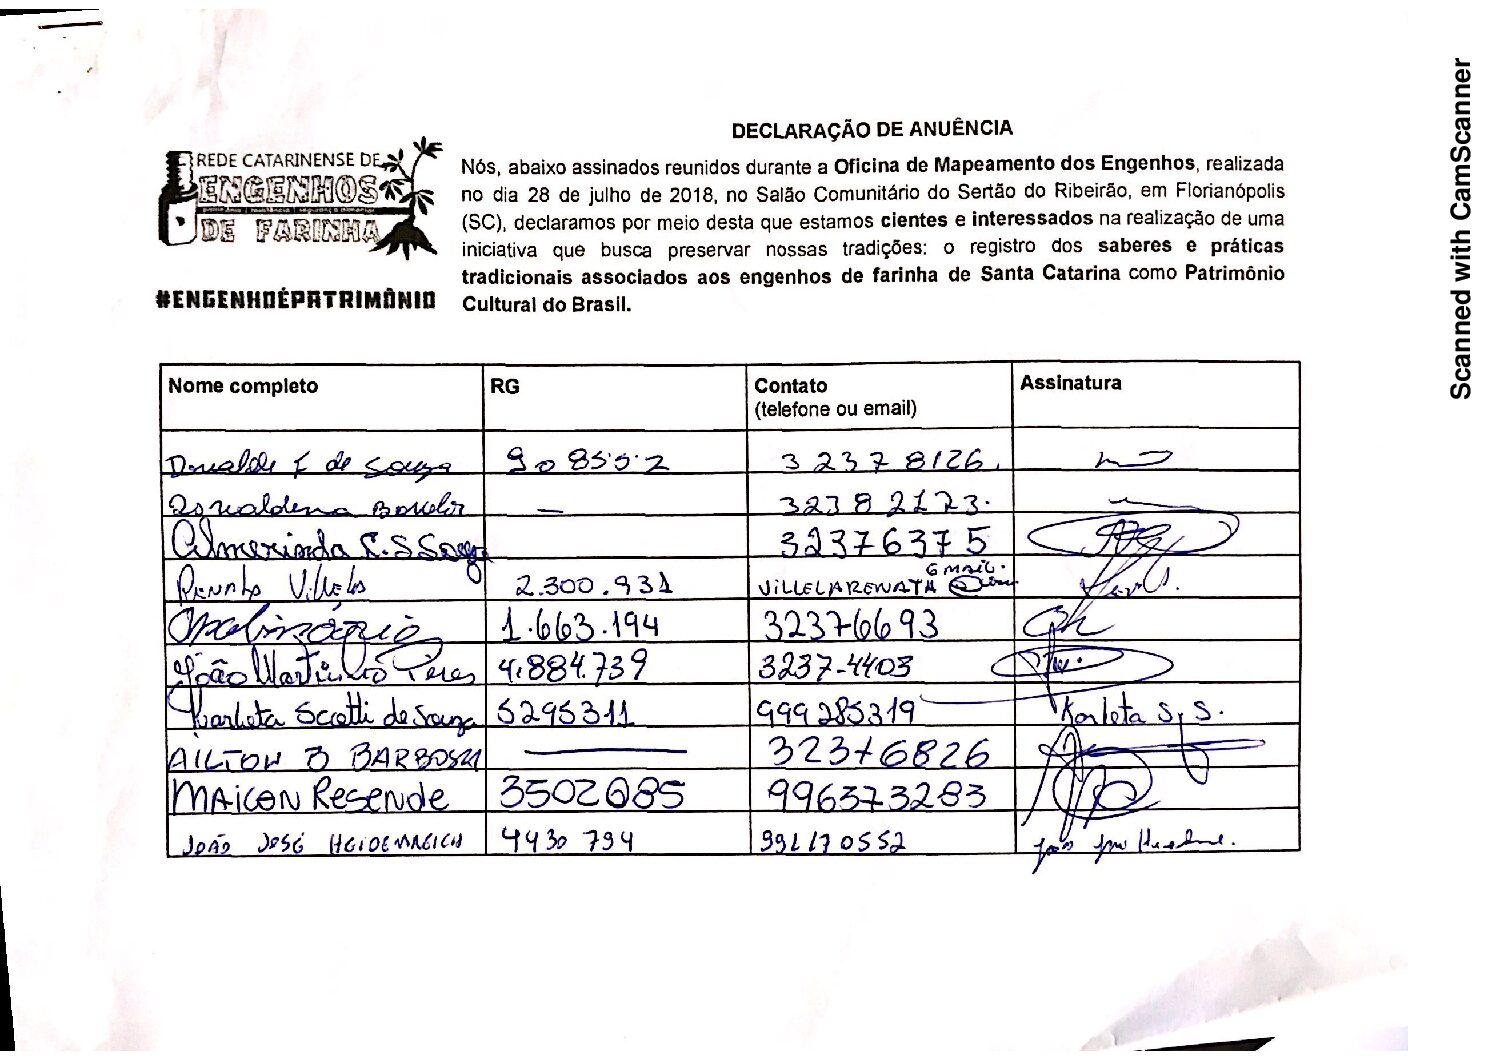 DECLARAÇÃO DE ANUÊNCIA
REDE CATARINENSE DE
ENGENHOS
DE FARINHA
#ENGENHOÉPATRIMÔNIO
Nós, abaixo assinados reunidos durante a Oficina de Mapeamento dos Engenhos, realizada
no dia 28 de julho de 2018, no Salão Comunitário do Sertão do Ribeirão, em Florianópolis
(SC), declaramos por meio desta que estamos cientes e interessados na realização de uma
iniciativa que busca preservar nossas tradições: o registro dos saberes e práticas
tradicionais associados aos engenhos de farinha de Santa Catarina como Patrimônio
Cultural do Brasil.
Nome completo RG Contato Assinatura
(telefone ou email)
de Souza 908552 32378126
32382173
Almerinda 32376375
Villela 2.300.931 VILLELARENATA GMAIL.
1.663.194 32376693
João Martinho Peres 4.884.739 3237-4403
Karleta Scotti de Souza 5295311 999285319 Karleta S. S.
AILTON B BARBOSA 32376826
MAICON Resende 3502085 996373283
JOÃO JOSÉ 4430 794 991170552 João
Scanned with CamScanner